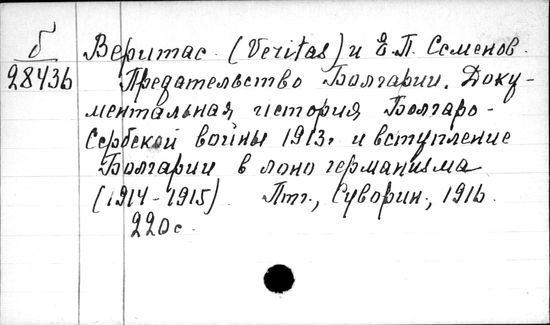 б
28436
Веритас (Veritas) и Е.П. Семенов.
Предательство Болгарии. Доку-
ментальная история Болгаро-
Сербской войны 1913г. и вступление
Болгарии в лоно германизма
(1914-1915). Птг., Суворин., 1916.
220с.